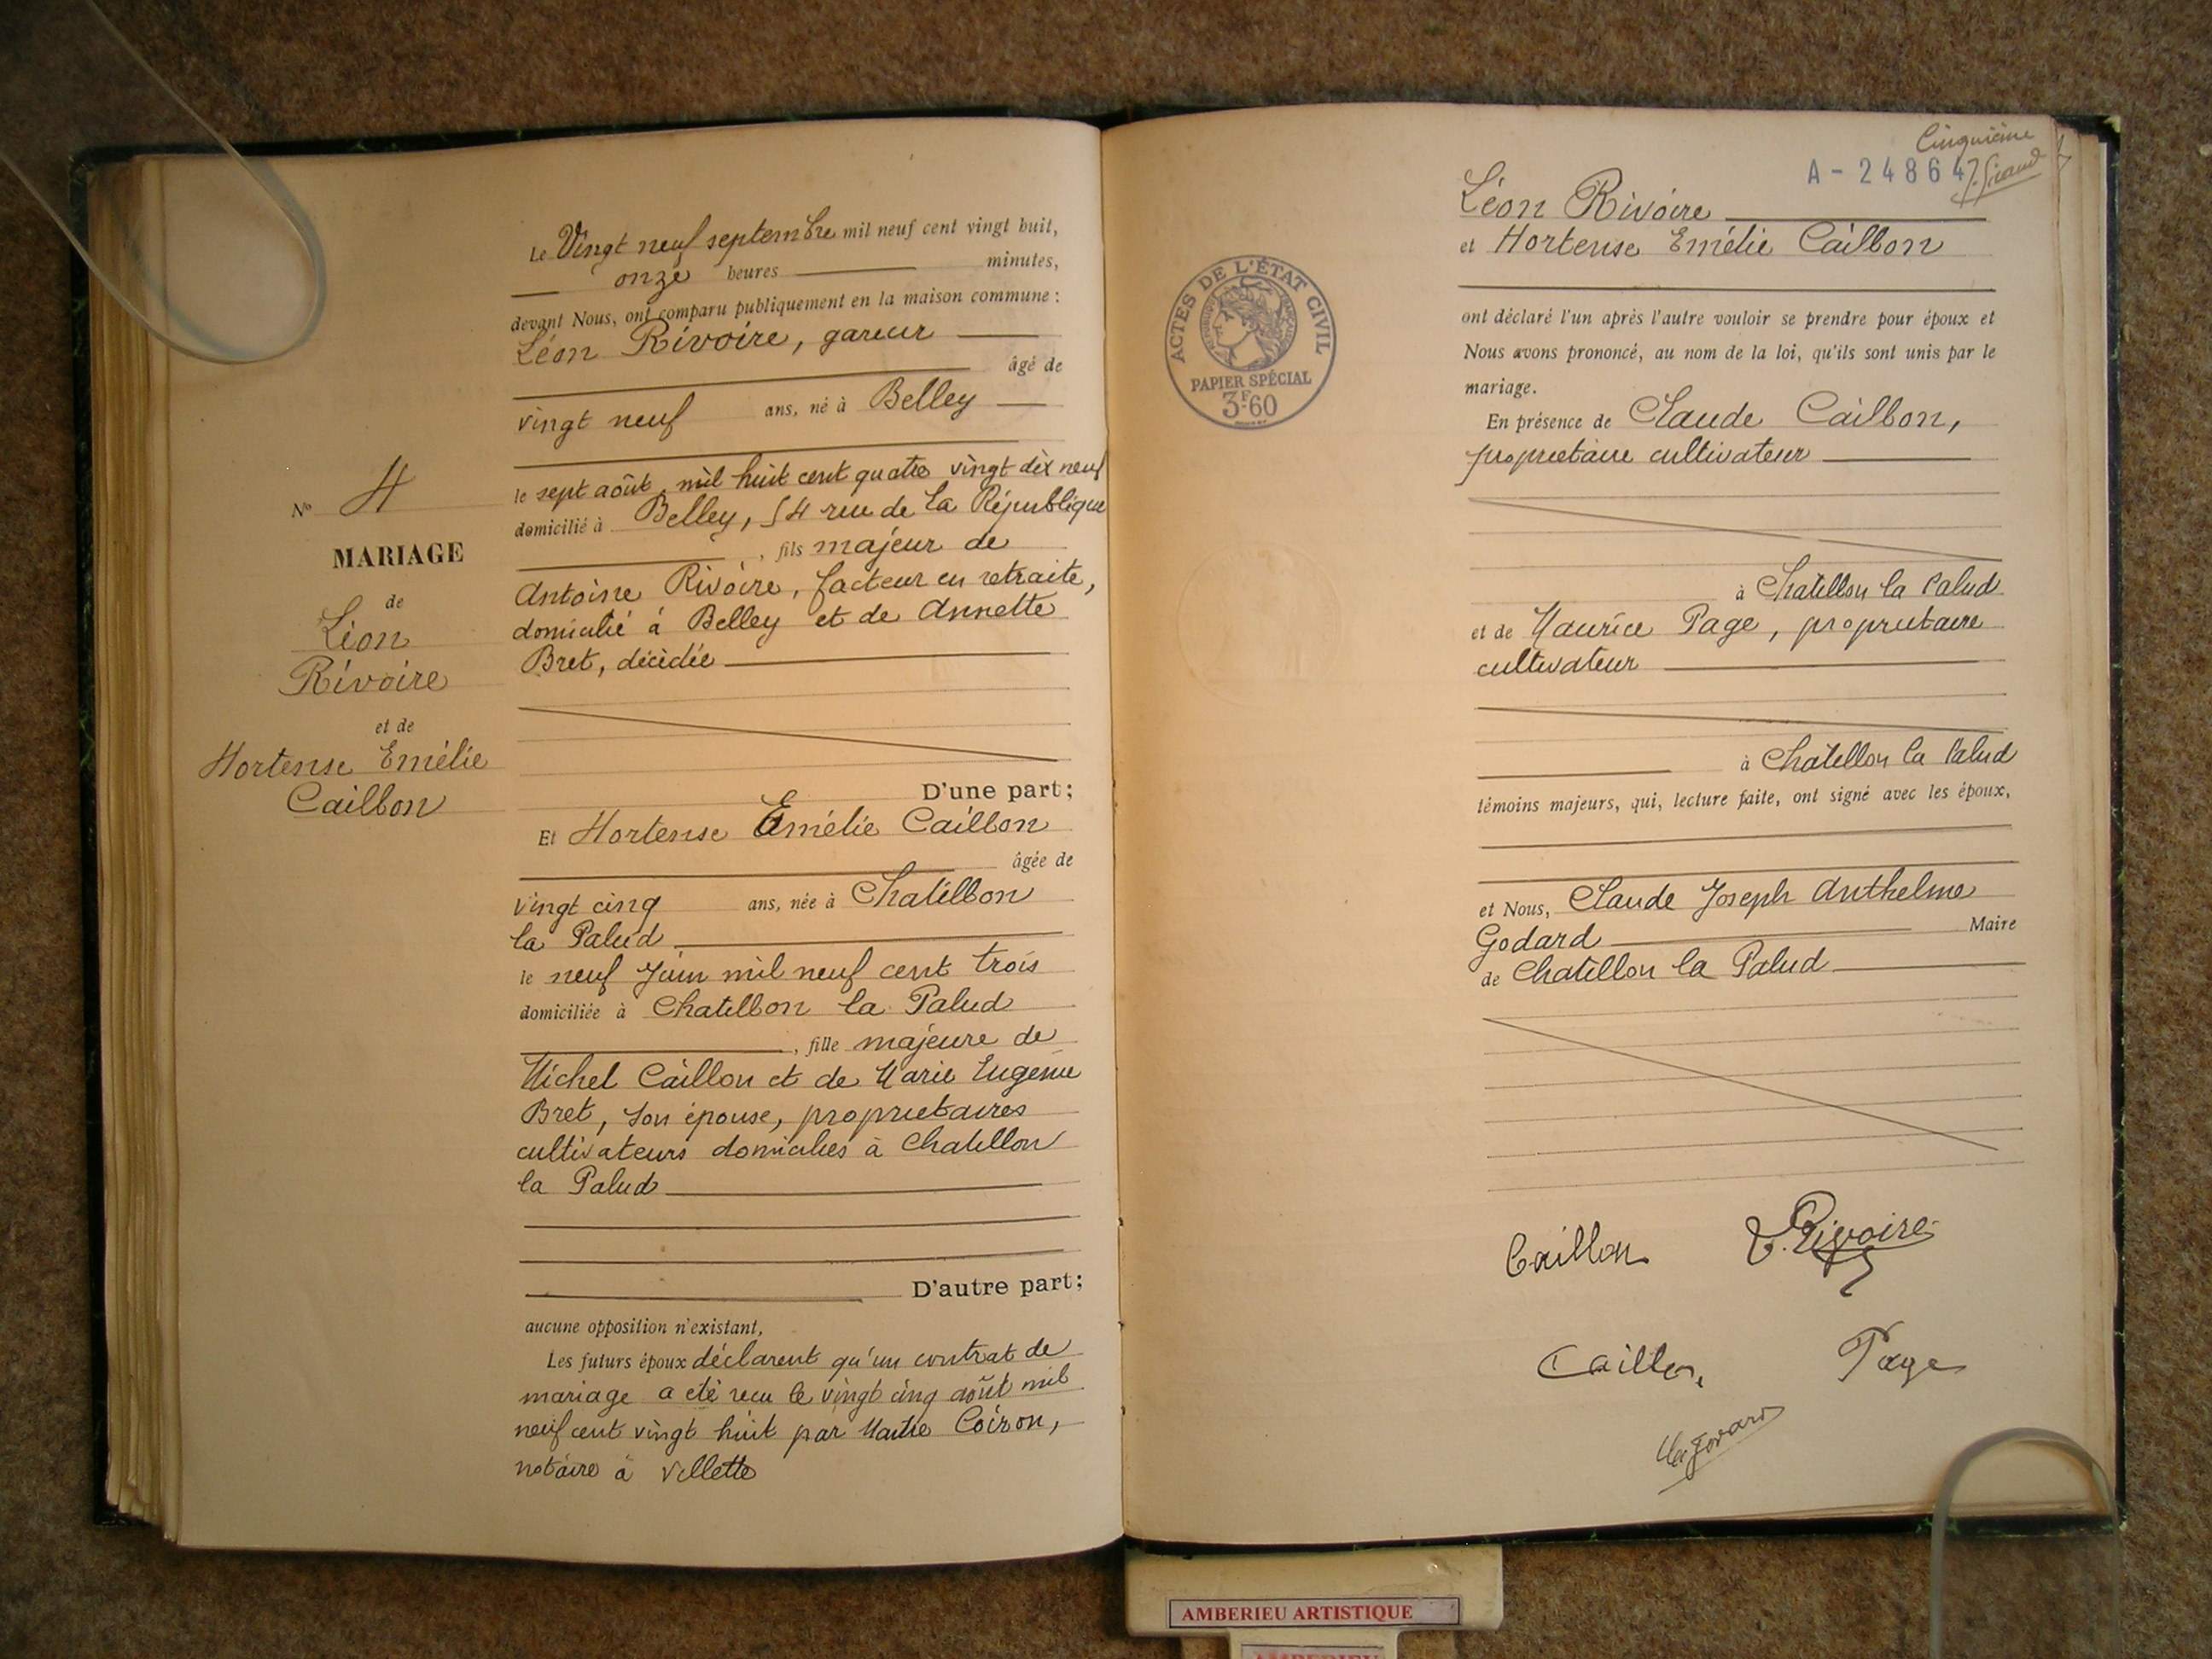 Le Vingt neuf septembre mil neuf cent vingt huit,
onze heures minutes,
devant Nous, ont comparu publiquement en la maison commune :
Léon Rivoire, gareur
âgé de
vingt neuf ans, né à Belley
le sept août mil huit cent quatre vingt dix neuf
domicilié à Belley, 54 rue de la République
, fils majeur de
Antoine Rivoire, facteur en retraite,
domicilié à Belley et de Annette
Bret, décédée
D'une part;
Et Hortense Emélie Caillon
âgée de
vingt cinq ans, née à Chatillon
la Palud
le neuf Juin mil neuf cent trois
domiciliée à Chatillon la Palud
, fille majeure de
Michel Caillon et de Marie Eugénie
Bret, son épouse, propriétaires
cultivateurs domiciliés à Chatillon
la Palud
D'autre part;
aucune opposition n'existant,
Les futurs époux déclarent qu'un contrat de
mariage a été reçu le vingt cinq août mil
neuf cent vingt huit par Maitre Coiron,
notaire à Villette
N° 4
MARIAGE
de
Léon
Rivoire
et de
Hortense Emélie
Caillon
Cinquième
A - 24864
Léon Rivoire
et Hortense Emélie Caillon
ont déclaré l'un après l'autre vouloir se prendre pour époux et
Nous avons prononcé, au nom de la loi, qu'ils sont unis par le
mariage.
En présence de Claude Caillon,
propriétaire cultivateur
à Chatillon la Palud
et de Maurice Page, propriétaire
cultivateur
à Chatillon la Palud
témoins majeurs, qui, lecture faite, ont signé avec les époux,
et Nous, Claude Joseph Anthelme
Godard Maire
de Chatillon la Palud
Caillon Rivoire
Caillon Page
Godard
ACTES DE L'ÉTAT CIVIL
RÉPUBLIQUE FRANÇAISE
PAPIER SPÉCIAL
3F.60
AMBERIEU ARTISTIQUE
AMBERIEU